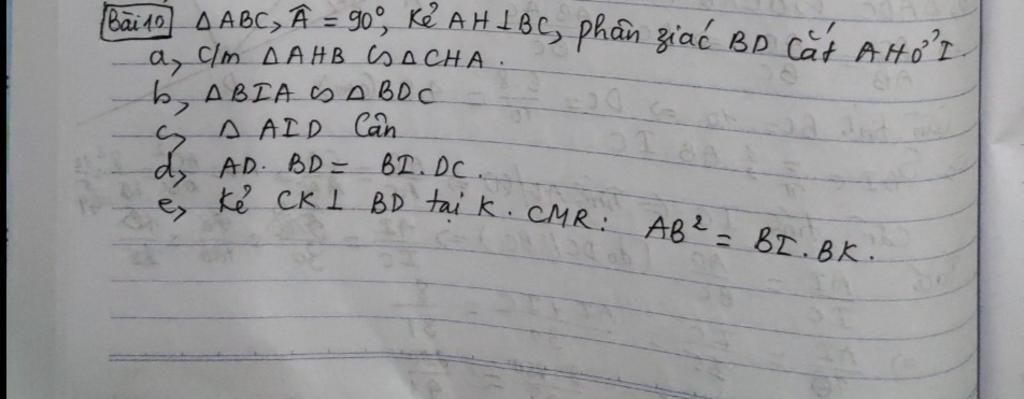 Bài 10 △ABC, Â = 90°, Kẻ AH⊥BC, phân giác BD Cắt AH ở I
a, C/m △AHB ∽ △CHA.
b, △BIA ∽ △BDC
c, △AID Cân
d, AD. BD = BI. DC.
e, Kẻ CK⊥ BD tại K. CMR: AB² = BI. BK.